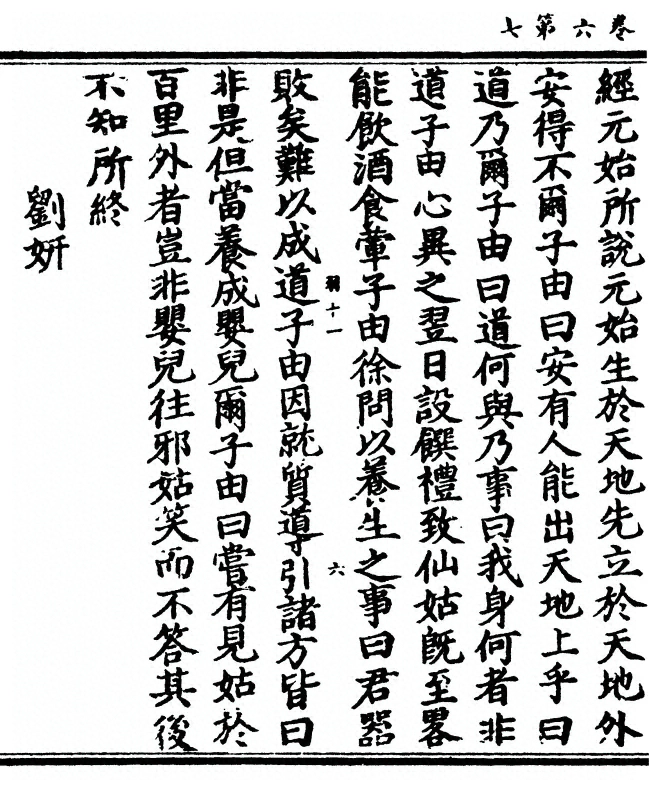 卷六第七
經元始所說元始生於天地先立於天地外
安得不爾子由曰安有人能出天地上乎曰
道乃爾子由曰道何與乃事曰我身何者非
道子由心異之翌日設饌禮致仙姑旣至畧
能飲酒食葷子由徐問以養生之事曰君器
羽十一
六
敗矣難以成道子由因就質導引諸方皆曰
非是但當養成嬰兒爾子由曰嘗有見姑於
百里外者豈非嬰兒往邪姑笑而不答其後
不知所終
劉妍